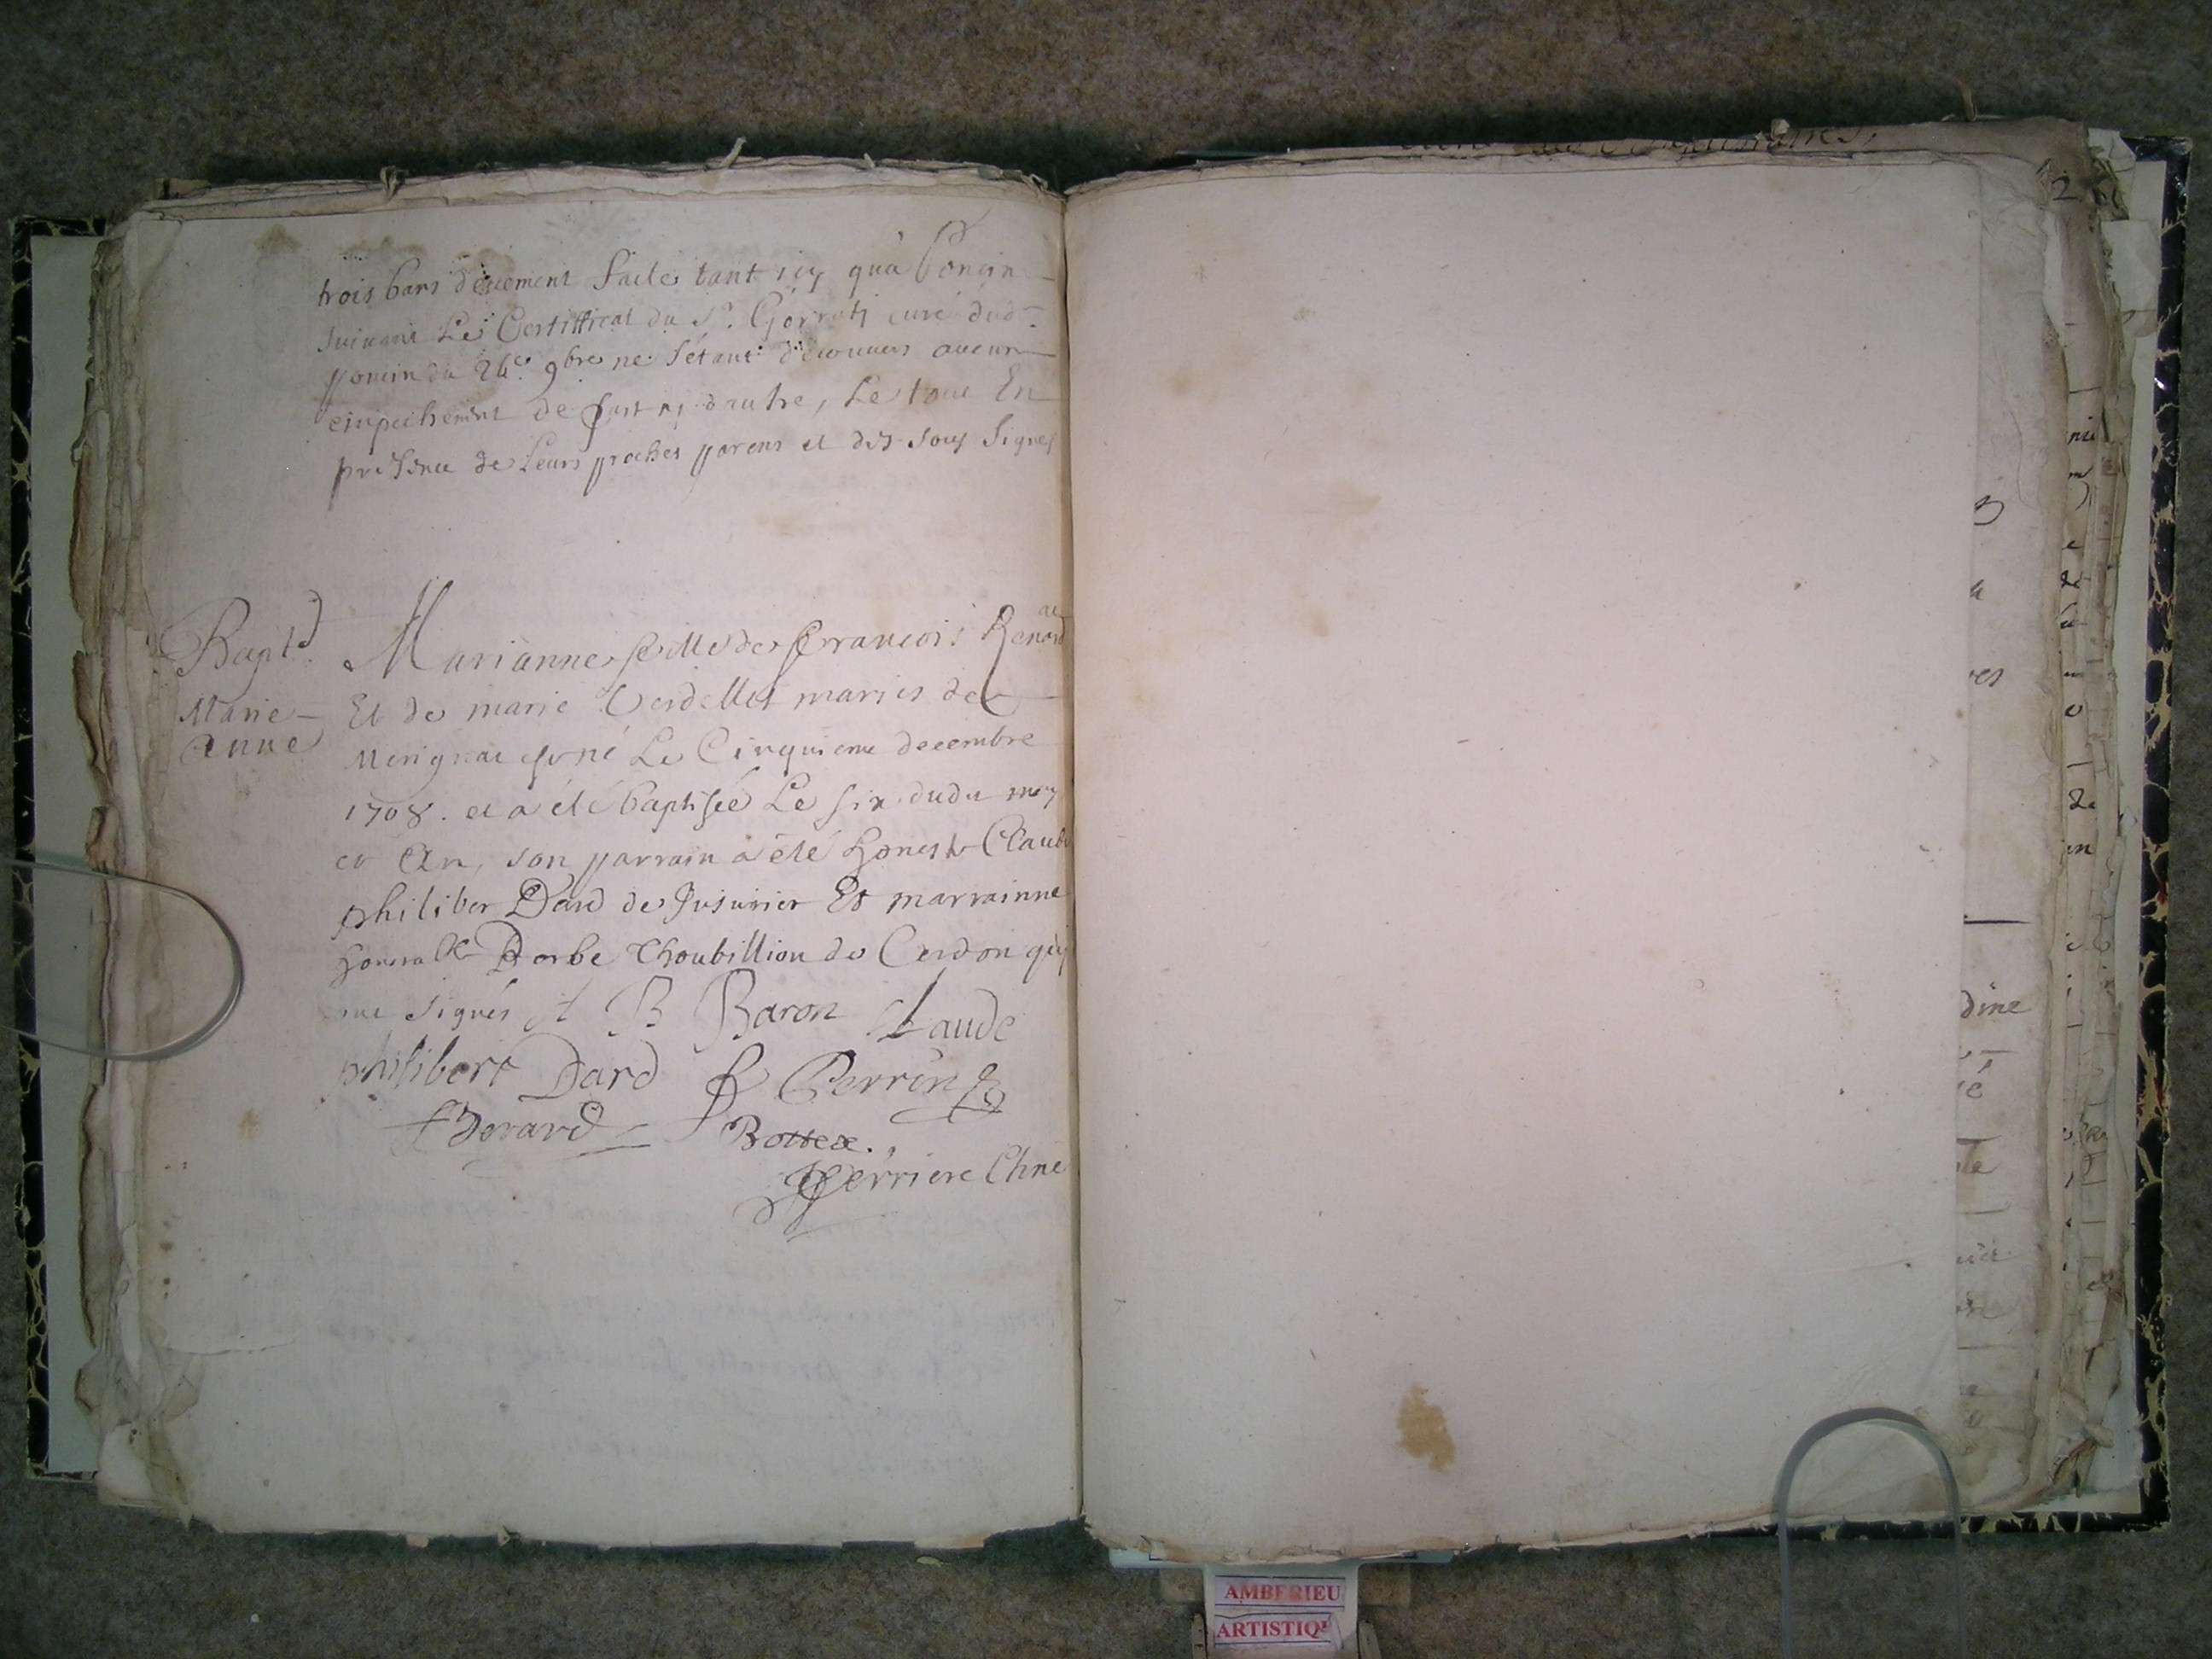 trois bans deuement faites tant icy qu'à Poncin
suivant Le Certifficat du Sr. curé dud.
poncin du 24e. 9bre ne s'étant découvers aucun
empechement de part ny d'autre, Le tout En
présence de Leurs proches parens et des sous signes
Bapt.
Marie
Anne
Marianne fille de francois Renard
Et de marie Verdellet maries de
Merignat est né Le Cinquieme decembre
1708. et a été baptisée Le six dudu moy
et An, son parrain a été honeste Claude
philiber Dard de Jusurier Et marrainne
honorable Choubillion de Cerdon qui
ont signés B Baron Claude
philibert Dard Perrin
Berard Bottex.
ferriere Chne
2
dine
AMBERIEU
ARTISTIQ